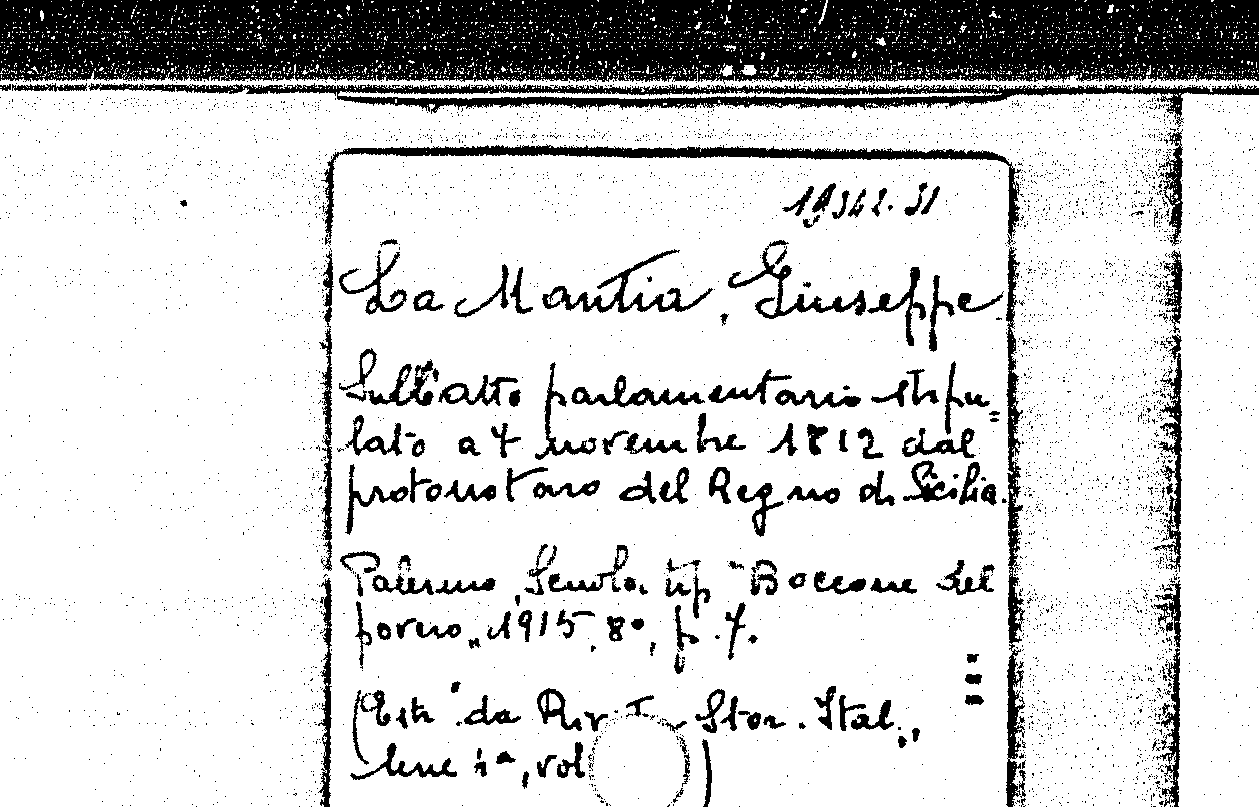 19342.31
La Mantia, Giuseppe
Sull'atto parlamentario stipu=
lato a 7 novembre 1812 dal
protonotaro del Regno di Sicilia.
Palermo, Scuola tip "Boccone del
povero", 1915, 8°, p. 7.
(Estr. da Riv. Stor. Ital.,
serie 4ª, vol )